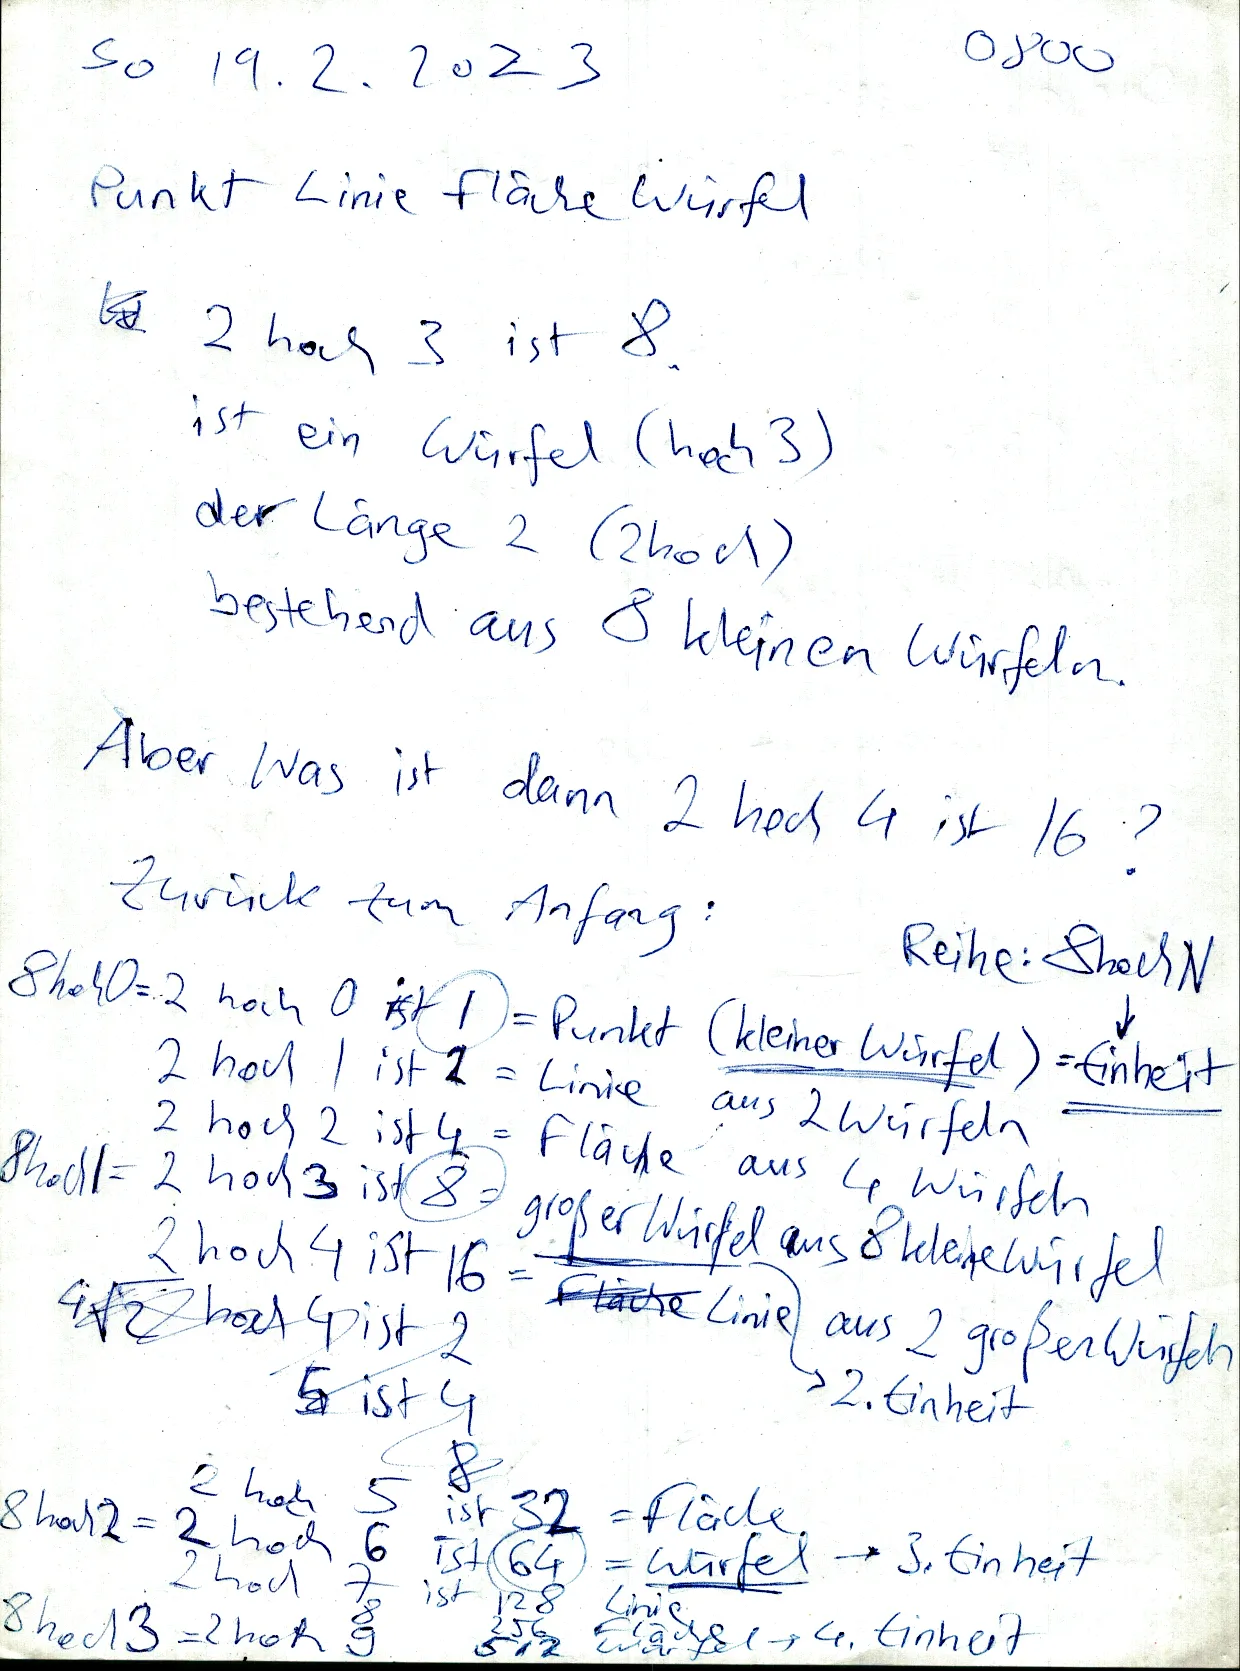 So 19.2.2023 0800
Punkt Linie Fläche Würfel
2 hoch 3 ist 8.
ist ein Würfel (hoch 3)
der Länge 2 (2hoch)
bestehend aus 8 kleinen Würfeln.
Aber Was ist dann 2 hoch 4 ist 16 ?
Zurück zum Anfang:
Reihe: 8hochN
8hoch0 = 2 hoch 0 ist 1 = Punkt (kleiner Würfel) = Einheit
2 hoch 1 ist 2 = Linie aus 2 Würfeln
2 hoch 2 ist 4 = Fläche aus 4 Würfeln
8hoch1 = 2 hoch 3 ist 8 = großer Würfel aus 8 kleine Würfel
2 hoch 4 ist 16 = Fläche Linie aus 2 großen Würfeln
4√2 hoch 4 ist 2
→ 2. Einheit
5 ist 4
8
2 hoch 5 ist 32 = Fläche
8hoch2 = 2 hoch 6 ist 64 = Würfel → 3. Einheit
2 hoch 7 ist 128 Linie
8 256 Fläche
8hoch3 = 2 hoch 9 512 Würfel → 4. Einheit